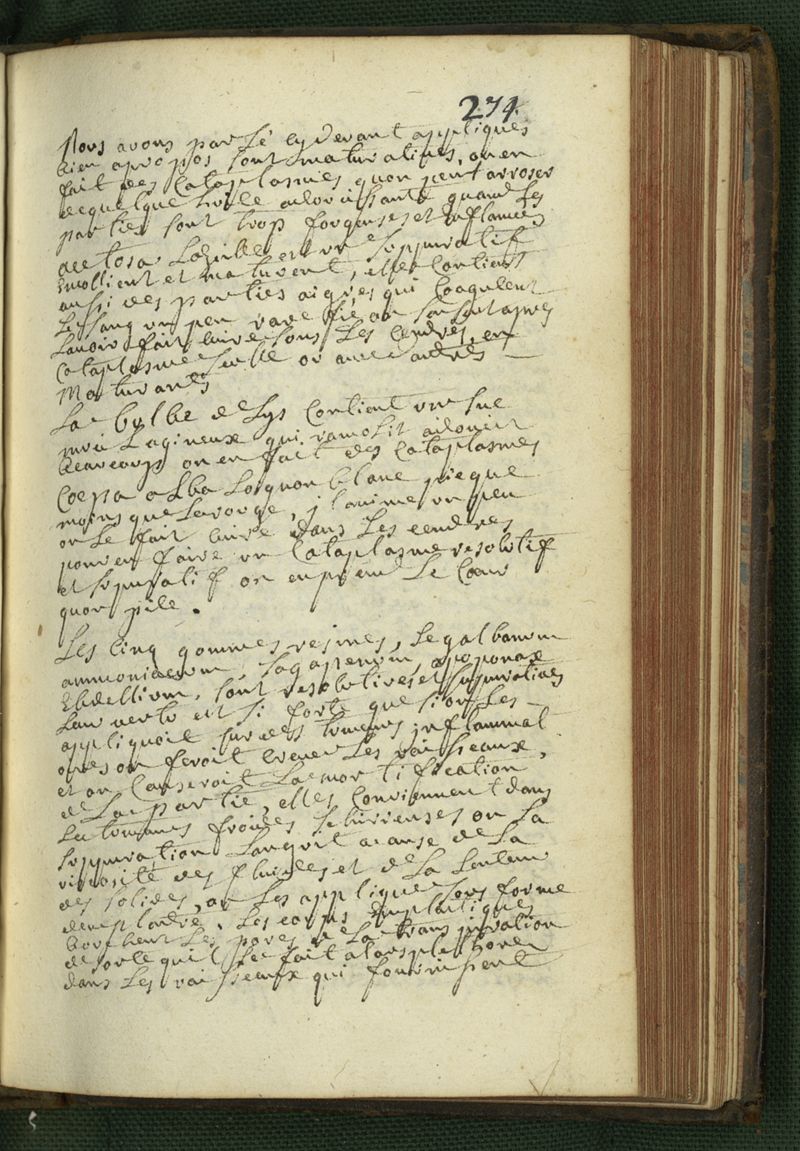 274.
Nous avons parlé cy devant appliqués
bien apropos sont maturatives, on en
fait des Cataplasmes quon peut arroser
de quelque huile adoucissante quand les
parties sont trop fongeuses et inflamées
acetosa Lozeille est un suppuratif
Emollient et maturent, elle Contient
aussi des parties aigres qui Coagulent
Le sang un peu rarefié on sen sert apres
Lavoir fait cuire sous Les Cendres, en
Cataplasme seulle ou avec autres
Maturands
La bulbe de Lys Contient un suc
mucilagineux qui ramolit adoucit
beaucoup on en fait des Cataplasmes
Coepa alba Loignon blanc pique
moins que Le rouge, il anime un peu
on Le fait cuire dans Les cendres
pour en faire un Cataplasme resolutif
et supuratif on en prend Le Coeur
quon pile.
Les Cinq gommes resines, Le galbanum
ammoniacum, sagapenum, opoponax
Ebdellium, sont resolutives et supuratives
Leur vertu est si forte que si on Les
appliquoit sur des tumeurs inflammat
oires on feroit crever Les vaisseaux
et on Causeroit La mortification
de La partie, elles Conviennent dans
Les tumeurs froides schirreuses ou La
suppuration Languit a cause de La
viscosité des fluides et de La
des solides, on Les applique sous forme
demplatre. Les corps Emplastiques
bouchent Les pores de La transpiration
de sorte quil se fait alors plethore
dans Les vaisseaux qui fournissent